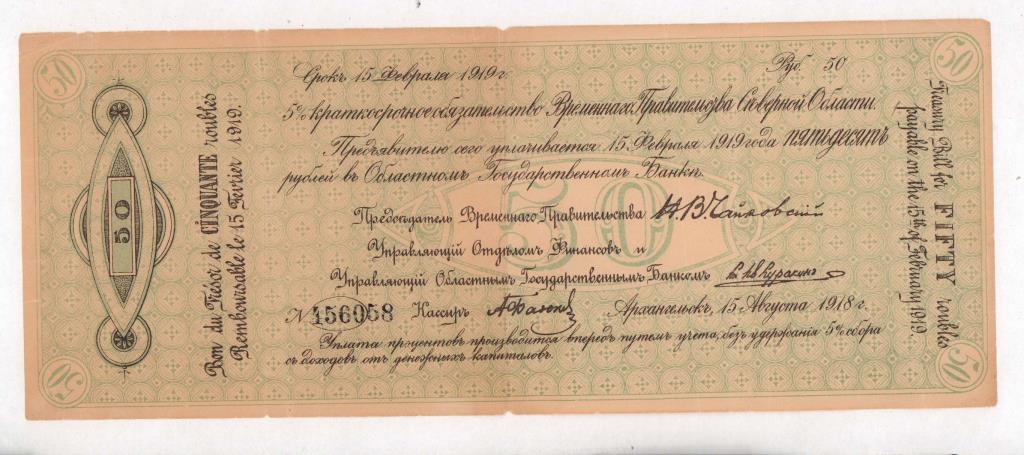 50
50
Срокъ 15 Февраля 1919 г.
Руб. 50
5% краткосрочное обязательство Временнаго Правительства Сѣверной Области.
Предъявителю сего уплачивается 15 Февраля 1919 года пятьдесятъ
рублей въ Областномъ Государственномъ Банкѣ.
50
Предсѣдатель Временнаго Правительства Н.В. Чайковскій
Управляющій Отдѣломъ Финансовъ и
Управляющій Областнымъ Государственнымъ Банкомъ Куракинъ
№ 156058 Кассиръ
Архангельскъ, 15 Августа 1918 г.
Уплата процентовъ производится впередъ путемъ учета, безъ удержания 5% сбора
съ доходовъ отъ денежныхъ капиталовъ.
50
Bon du Trésor de CINQUANTE roubles
Remboursable le 15 Février 1919.
Treasury Bill for FIFTY roubles
payable on the 15th of February 1919
50
50